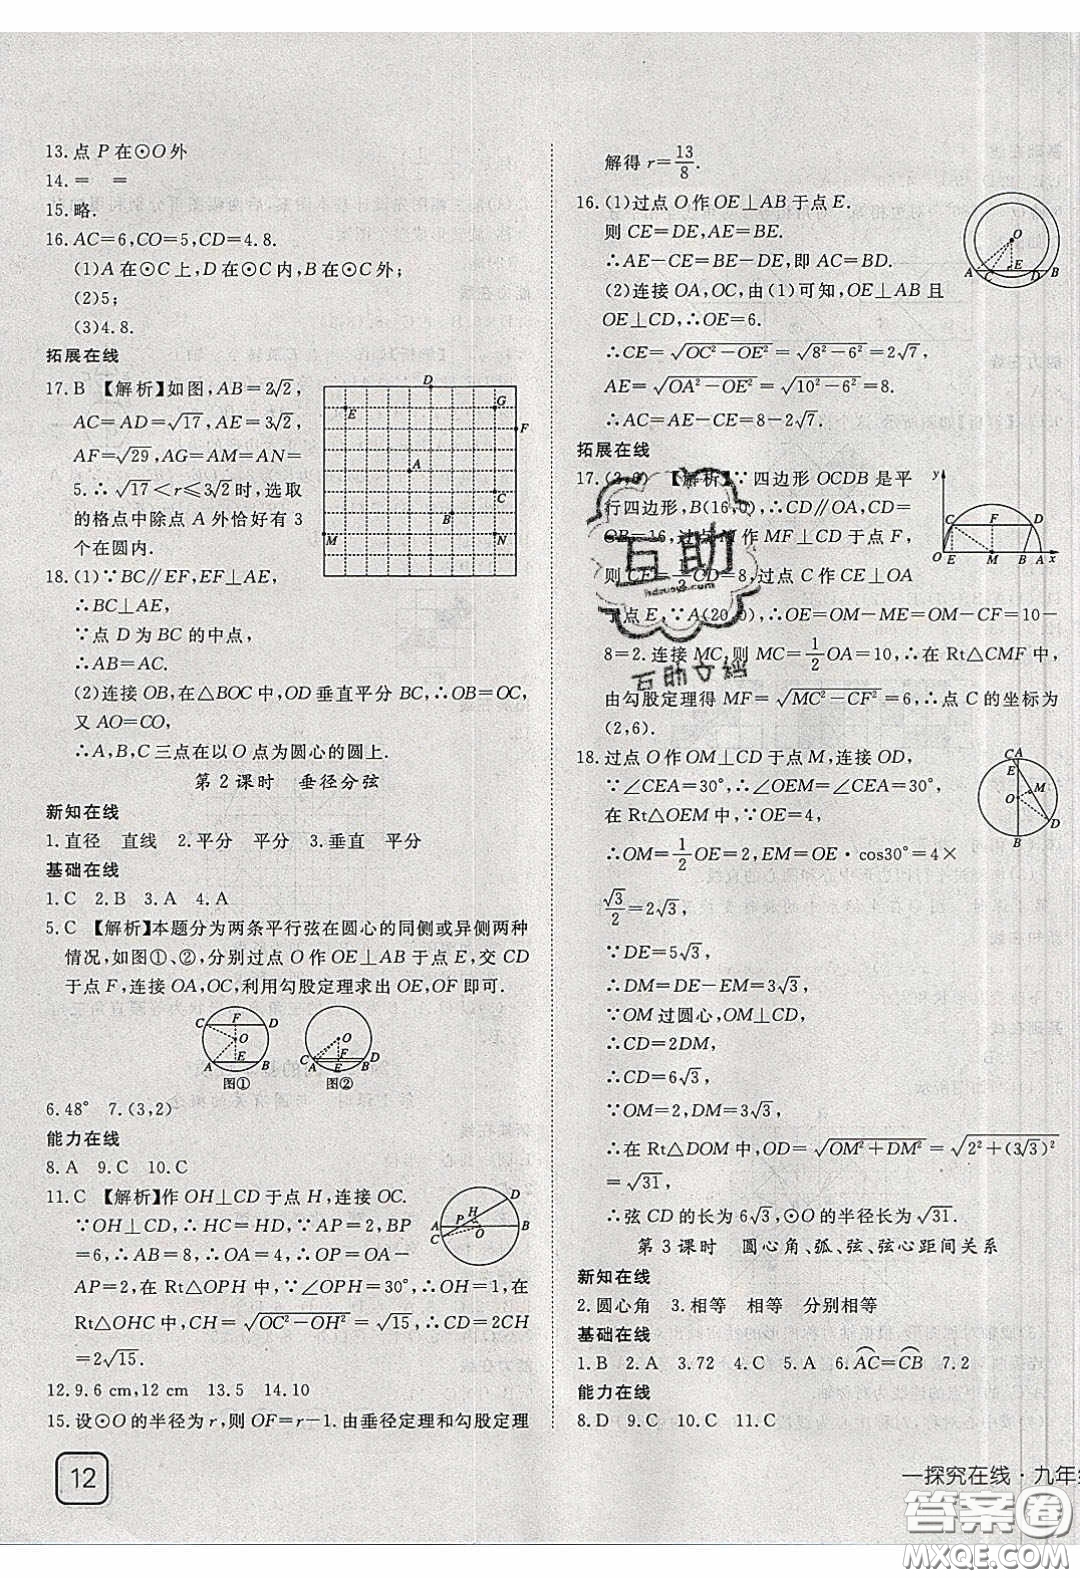 13.点 P 在⊙O 外
14.= =
15.略.
16.AC=6,CO=5,CD=4.8.
(1)A 在⊙C 上,D 在⊙C 内,B 在⊙C 外;
(2)5;
(3)4.8.
拓展在线
17.B 【解析】如图,AB=2√2,
AC=AD=√17,AE=3√2,
AF=√29,AG=AM=AN=
5.∴√17<r≤3√2时,选取
的格点中除点 A 外恰好有 3
个在圆内.
D
E
G
F
A
C
B
M
N
18.(1)∵BC∥EF,EF⊥AE,
∴BC⊥AE,
∵点 D 为 BC 的中点,
∴AB=AC.
(2)连接 OB,在△BOC 中,OD 垂直平分 BC,∴OB=OC,
又 AO=CO,
∴A,B,C 三点在以 O 点为圆心的圆上.
第 2 课时 垂径分弦
新知在线
1.直径 直线 2.平分 平分 3.垂直 平分
基础在线
1.C 2.B 3.A 4.A
5.C 【解析】本题分为两条平行弦在圆心的同侧或异侧两种
情况,如图①、②,分别过点 O 作 OE⊥AB 于点 E,交 CD
于点 F,连接 OA,OC,利用勾股定理求出 OE,OF 即可.
C F D
O
A E B
图①
O
C F D
A E B
图②
6.48° 7.(3,2)
能力在线
8.A 9.C 10.C
11.C 【解析】作 OH⊥CD 于点 H,连接 OC.
∵OH⊥CD,∴HC=HD,∵AP=2,BP
=6,∴AB=8,∴OA=4,∴OP=OA-
AP=2,在 Rt△OPH 中,∵∠OPH=30°,∴OH=1,在
Rt△OHC 中,CH=√OC²-OH²=√15,∴CD=2CH
=2√15.
D
H
A P B
C O
12.9.6 cm,12 cm 13.5 14.10
15.设⊙O 的半径为 r,则 OF=r-1.由垂径定理和勾股定理
12
解得 r=13/8.
16.(1)过点 O 作 OE⊥AB 于点 E.
则 CE=DE,AE=BE.
∴AE-CE=BE-DE,即 AC=BD.
(2)连接 OA,OC,由(1)可知,OE⊥AB 且
OE⊥CD,∴OE=6.
∴CE=√OC²-OE²=√8²-6²=2√7,
AE=√OA²-OE²=√10²-6²=8.
∴AC=AE-CE=8-2√7.
O
A C E D B
拓展在线
17.(2,6) 【解析】∵四边形 OCDB 是平
行四边形,B(16,0),∴CD∥OA,CD=
OB=16,过点 M 作 MF⊥CD 于点 F,
则 CF= CD=8,过点 C 作 CE⊥OA
于点 E,∵A(20,0),∴OE=OM-ME=OM-CF=10-
8=2.连接 MC,则 MC=1/2OA=10,∴在 Rt△CMF 中,
由勾股定理得 MF=√MC²-CF²=6,∴点 C 的坐标为
(2,6).
y
C F D
O E M B A x
互助
hdzuoye.com
互助文档
18.过点 O 作 OM⊥CD 于点 M,连接 OD,
∵∠CEA=30°,∴∠OEM=∠CEA=30°,
在 Rt△OEM 中,∵OE=4,
∴OM=1/2OE=2,EM=OE·cos30°=4×
√3/2=2√3,
∵DE=5√3,
∴DM=DE-EM=3√3,
∵OM 过圆心,OM⊥CD,
∴CD=2DM,
∴CD=6√3,
∵OM=2,DM=3√3,
∴在 Rt△DOM 中,OD=√OM²+DM²=√2²+(3√3)²
=√31,
∴弦 CD 的长为 6√3,⊙O 的半径长为√31.
C A
E
M
O
D
B
第 3 课时 圆心角、弧、弦、弦心距间关系
新知在线
2.圆心角 3.相等 相等 分别相等
基础在线
1.B 2.A 3.72 4.C 5.A 6.AC=CB 7.2
能力在线
8.D 9.C 10.C 11.C
一探究在线·九年级
答案圈
MXQE.COM